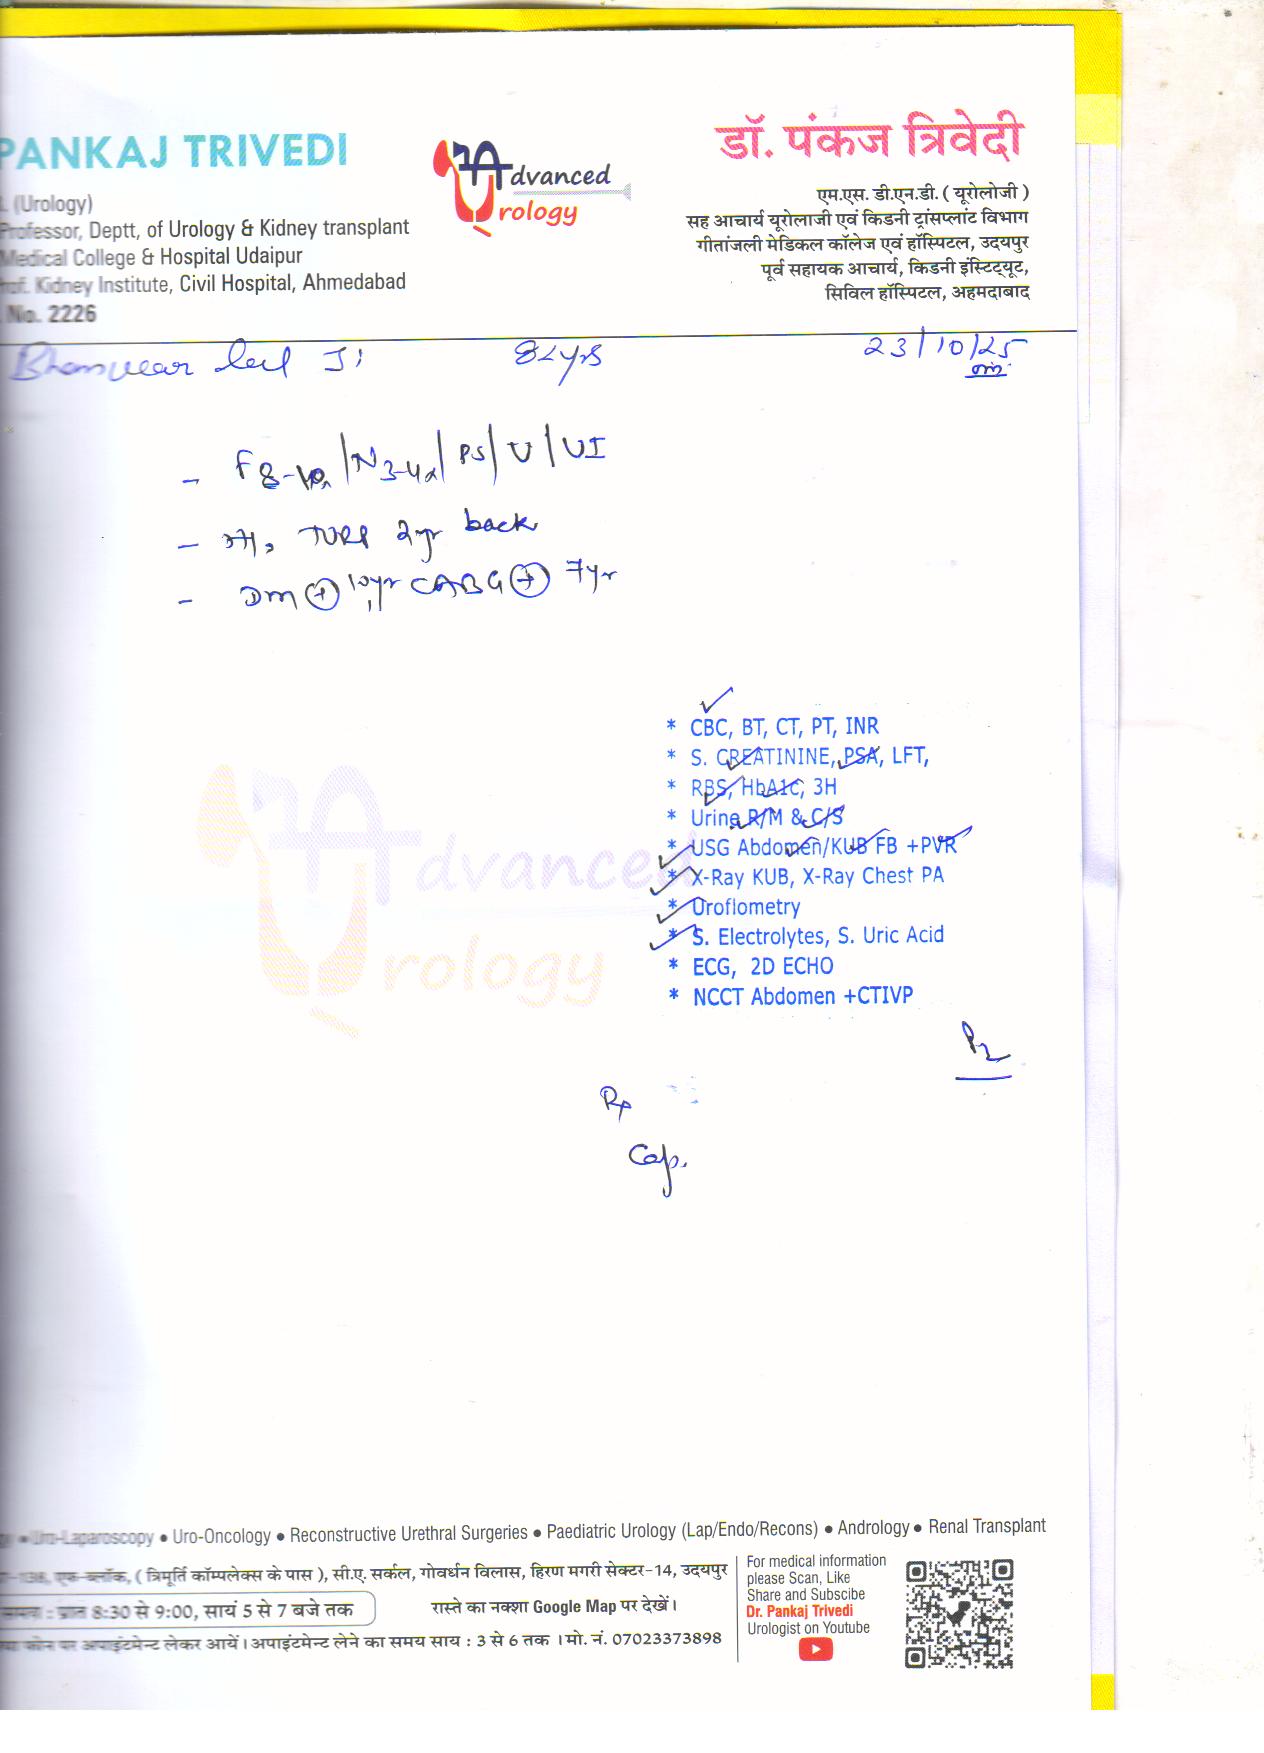 PANKAJ TRIVEDI
(Urology)
Professor, Deptt, of Urology & Kidney transplant
Medical College & Hospital Udaipur
Prof. Kidney Institute, Civil Hospital, Ahmedabad
No. 2226
Advanced
Urology
डॉ. पंकज त्रिवेदी
एम.एस. डी.एन.डी. ( यूरोलोजी )
सह आचार्य यूरोलाजी एवं किडनी ट्रांसप्लांट विभाग
गीतांजली मेडिकल कॉलेज एवं हॉस्पिटल, उदयपुर
पूर्व सहायक आचार्य, किडनी इंस्टिट्यूट,
सिविल हॉस्पिटल, अहमदाबाद
Bhanwar Lal Ji 82yrs 23/10/25
- F8-10x/N3-4x/PS/U/UI
- TURP 2yr back
- DM (+) 10yr CABG (+) 7yr
* CBC, BT, CT, PT, INR
* S. CREATININE, PSA, LFT,
* RBS, HbA1C, 3H
* Urine R/M & C/S
* USG Abdomen/KUB FB +PVR
* X-Ray KUB, X-Ray Chest PA
* Uroflometry
* S. Electrolytes, S. Uric Acid
* ECG, 2D ECHO
* NCCT Abdomen +CTIVP
Advanced
Urology
Rp
Cap.
Uro-Laparoscopy ● Uro-Oncology ● Reconstructive Urethral Surgeries ● Paediatric Urology (Lap/Endo/Recons) ● Andrology ● Renal Transplant
138, एफ-ब्लॉक, ( त्रिमूर्ति कॉम्पलेक्स के पास ), सी.ए. सर्कल, गोवर्धन विलास, हिरण मगरी सेक्टर-14, उदयपुर
समय : प्रातः 8:30 से 9:00, सायं 5 से 7 बजे तक
रास्ते का नक्शा Google Map पर देखें।
फोन पर अपाइंटमेन्ट लेकर आयें। अपाइंटमेन्ट लेने का समय साय : 3 से 6 तक । मो. नं. 07023373898
For medical information
please Scan, Like
Share and Subscibe
Dr. Pankaj Trivedi
Urologist on Youtube